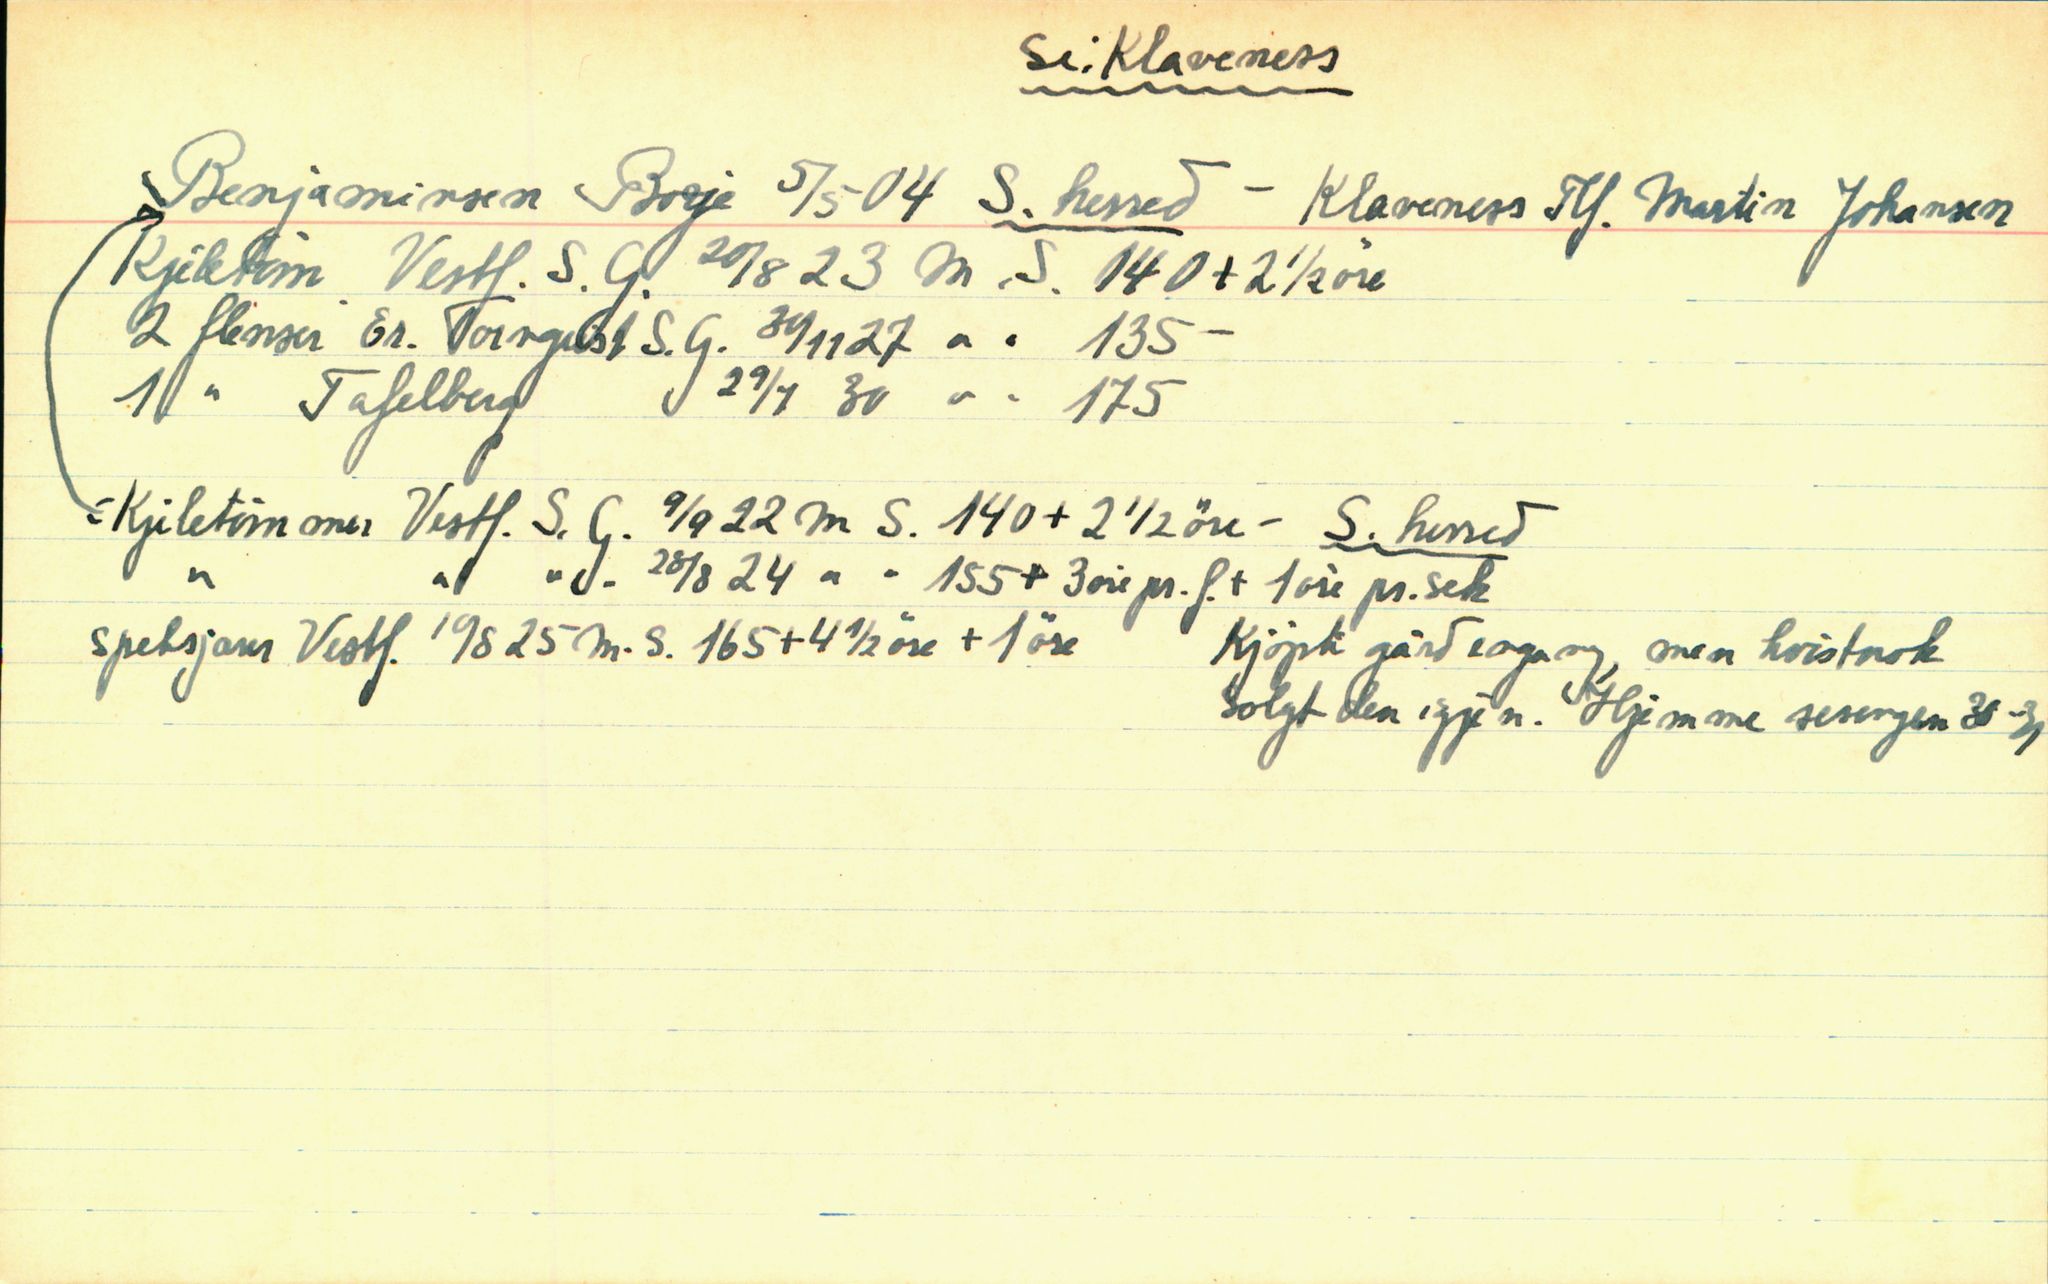 se: Klaveness
Benjaminsen Borje 5/5-04 S. herred - Klaveness Tlf. Martin Johansen
Kjiletöm Vestf. S. G. 20/8 23 M. S. 140 + 2 1/2 öre
2 flenser Er. Tornquist S.G. 30/11 27 " " 135 -
1 " Tafelberg 29/7 30 " " 175
= Kjiletömmer Vestf. S. G. 9/9 22 M S. 140 + 2 1/2 öre - S. herred
" " " " 28/8 24 " " 155 + 3 öre pr. f. + 1 öre pr. sek
speksjærer Vestf. 19/8 25 M. S. 165 + 4 1/2 öre + 1 öre
Kjöpte gård engang, men hvistnok
solgt den igjen. Hjemme sesongen 30-31